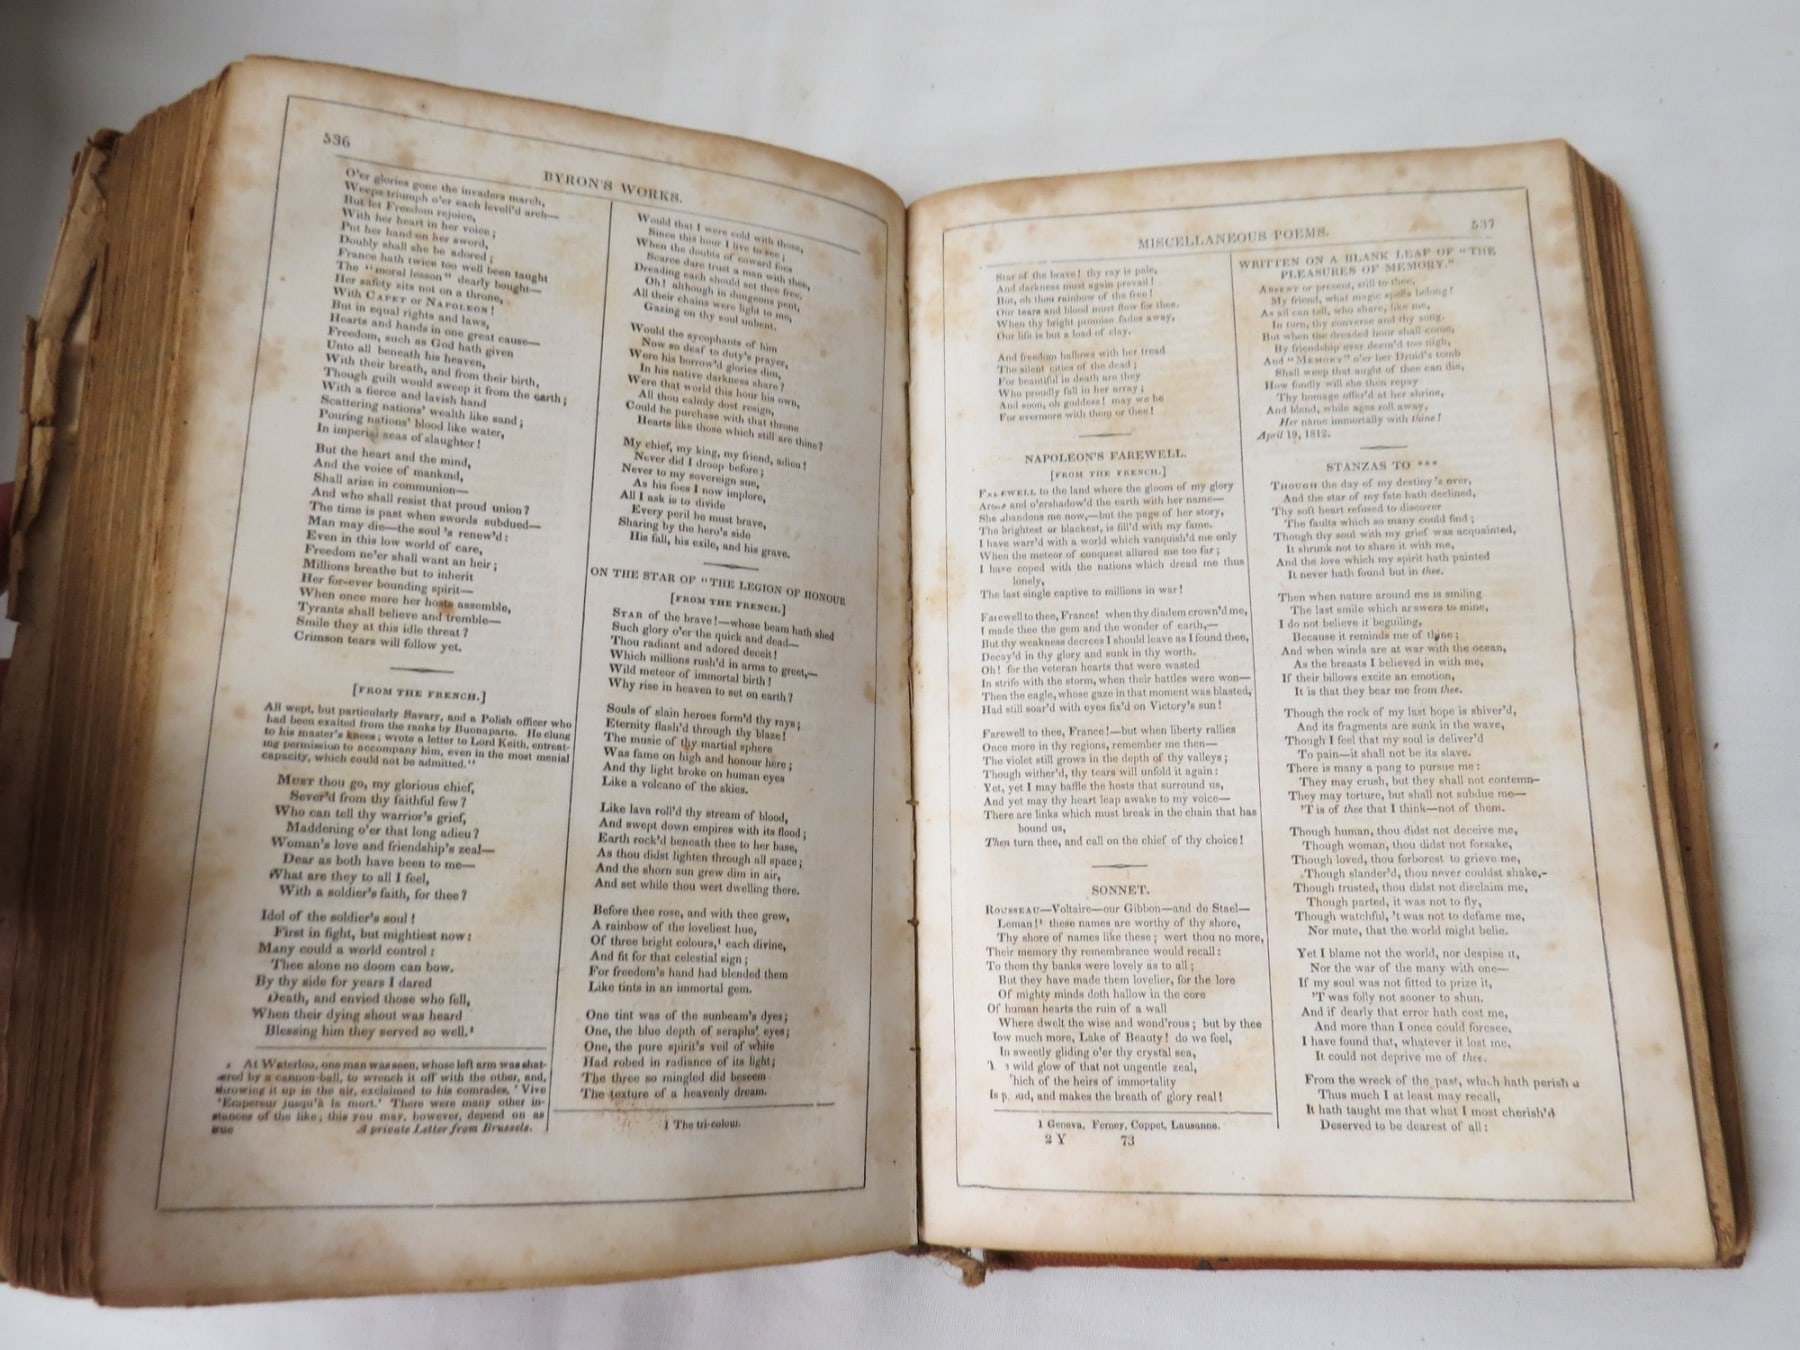 536
BYRON'S WORKS.
O'er glories gone the invaders march,
Weeps triumph o'er each levell'd arch—
But let Freedom rejoice,
With her heart in her voice;
Put her hand on her sword,
Doubly shall she be adored;
France hath twice too well been taught
The "moral lesson" dearly bought—
Her safety sits not on a throne,
With CAPET or NAPOLEON!
But in equal rights and laws,
Hearts and hands in one great cause—
Freedom, such as God hath given
Unto all beneath his heaven,
With their breath, and from their birth,
Though guilt would sweep it from the earth;
With a fierce and lavish hand
Scattering nations' wealth like sand;
Pouring nations' blood like water,
In imperial seas of slaughter!
But the heart and the mind,
And the voice of mankind,
Shall arise in communion—
And who shall resist that proud union?
The time is past when swords subdued—
Man may die—the soul's renew'd:
Even in this low world of care,
Freedom ne'er shall want an heir;
Millions breathe but to inherit
Her for-ever bounding spirit—
When once more her hosts assemble,
Tyrants shall believe and tremble—
Smile they at this idle threat?
Crimson tears will follow yet.
[FROM THE FRENCH.]
All wept, but particularly Savary, and a Polish officer who
had been exalted from the ranks by Buonaparte. He clung
to his master's knees; wrote a letter to Lord Keith, entreat-
ing permission to accompany him, even in the most menial
capacity, which could not be admitted."
MUST thou go, my glorious chief,
Sever'd from thy faithful few?
Who can tell thy warrior's grief,
Maddening o'er that long adieu?
Woman's love and friendship's zeal—
Dear as both have been to me—
What are they to all I feel,
With a soldier's faith, for thee?
Idol of the soldier's soul!
First in fight, but mightiest now:
Many could a world control:
Thee alone no doom can bow.
By thy side for years I dared
Death, and envied those who fell,
When their dying shout was heard
Blessing him they served so well.¹
At Waterloo, one man was seen, whose left arm was shat-
ered by a cannon-ball, to wrench it off with the other, and,
throwing it up in the air, exclaimed to his comrades, 'Vive
'Empereur jusqu'à la mort.' There were many other in-
stances of the like; this you may, however, depend on as
true
A private Letter from Brussels.
Would that I were cold with those,
Since this hour I live to see;
When the doubts of coward foes
Scarce dare trust a man with thee,
Dreading each should set thee free.
Oh! although in dungeons pent,
All their chains were light to me,
Gazing on thy soul unbent.
Would the sycophants of him
Now so deaf to duty's prayer,
Were his borrow'd glories dim,
In his native darkness share?
Were that world this hour his own,
All thou calmly dost resign,
Could he purchase with that throne
Hearts like those which still are thine?
My chief, my king, my friend, adieu!
Never did I droop before;
Never to my sovereign sue,
As his foes I now implore,
All I ask is to divide
Every peril he must brave,
Sharing by the hero's side
His fall, his exile, and his grave.
ON THE STAR OF "THE LEGION OF HONOUR
[FROM THE FRENCH.]
STAR of the brave!—whose beam hath shed
Such glory o'er the quick and dead—
Thou radiant and adored deceit!
Which millions rush'd in arms to greet,—
Wild meteor of immortal birth!
Why rise in heaven to set on earth?
Souls of slain heroes form'd thy rays;
Eternity flash'd through thy blaze!
The music of thy martial sphere
Was fame on high and honour here;
And thy light broke on human eyes
Like a volcano of the skies.
Like lava roll'd thy stream of blood,
And swept down empires with its flood;
Earth rock'd beneath thee to her base,
As thou didst lighten through all space;
And the shorn sun grew dim in air,
And set while thou wert dwelling there.
Before thee rose, and with thee grew,
A rainbow of the loveliest hue,
Of three bright colours,¹ each divine,
And fit for that celestial sign;
For freedom's hand had blended them
Like tints in an immortal gem.
One tint was of the sunbeam's dyes;
One, the blue depth of seraphs' eyes;
One, the pure spirit's veil of white
Had robed in radiance of its light;
The three so mingled did beseem
The texture of a heavenly dream.
1 The tri-colour.
MISCELLANEOUS POEMS.
537
Star of the brave! thy ray is pale,
And darkness must again prevail!
But, oh thou rainbow of the free!
Our tears and blood must flow for thee.
When thy bright promise fades away,
Our life is but a load of clay.
And freedom hallows with her tread
The silent cities of the dead;
For beautiful in death are they
Who proudly fall in her array;
And soon, oh goddess! may we be
For evermore with them or thee!
NAPOLEON'S FAREWELL.
[FROM THE FRENCH.]
FAREWELL to the land where the gloom of my glory
Arose and o'ershadow'd the earth with her name—
She abandons me now,—but the page of her story,
The brightest or blackest, is fill'd with my fame.
I have warr'd with a world which vanquish'd me only
When the meteor of conquest allured me too far;
I have coped with the nations which dread me thus
lonely,
The last single captive to millions in war!
Farewell to thee, France! when thy diadem crown'd me,
I made thee the gem and the wonder of earth,—
But thy weakness decrees I should leave as I found thee,
Decay'd in thy glory and sunk in thy worth.
Oh! for the veteran hearts that were wasted
In strife with the storm, when their battles were won—
Then the eagle, whose gaze in that moment was blasted,
Had still soar'd with eyes fix'd on Victory's sun!
Farewell to thee, France!—but when liberty rallies
Once more in thy regions, remember me then—
The violet still grows in the depth of thy valleys;
Though wither'd, thy tears will unfold it again:
Yet, yet I may baffle the hosts that surround us,
And yet may thy heart leap awake to my voice—
There are links which must break in the chain that has
bound us,
Then turn thee, and call on the chief of thy choice!
SONNET.
ROUSSEAU—Voltaire—our Gibbon—and de Stael—
Leman!¹ these names are worthy of thy shore,
Thy shore of names like these; wert thou no more,
Their memory thy remembrance would recall:
To them thy banks were lovely as to all;
But they have made them lovelier, for the lore
Of mighty minds doth hallow in the core
Of human hearts the ruin of a wall
Where dwelt the wise and wond'rous; but by thee
low much more, Lake of Beauty! do we feel,
In sweetly gliding o'er thy crystal sea,
wild glow of that not ungentle zeal,
'hich of the heirs of immortality
Is p. oud, and makes the breath of glory real!
1 Geneva, Ferney, Coppet, Lausanne.
2 Y 73
WRITTEN ON A BLANK LEAF OF "THE
PLEASURES OF MEMORY."
ABSENT or present, still to thee,
My friend, what magic spells belong!
As all can tell, who share, like me,
In turn, thy converse and thy song.
But when the dreaded hour shall come,
By friendship ever deem'd too nigh,
And "MEMORY" o'er her Druid's tomb
Shall weep that aught of thee can die,
How fondly will she then repay
Thy homage offer'd at her shrine,
And blend, while ages roll away,
Her name immortally with thine!
April 19, 1812.
STANZAS TO ***
THOUGH the day of my destiny's over,
And the star of my fate hath declined,
Thy soft heart refused to discover
The faults which so many could find;
Though thy soul with my grief was acquainted,
It shrunk not to share it with me,
And the love which my spirit hath painted
It never hath found but in thee.
Then when nature around me is smiling
The last smile which answers to mine,
I do not believe it beguiling,
Because it reminds me of thine;
And when winds are at war with the ocean,
As the breasts I believed in with me,
If their billows excite an emotion,
It is that they bear me from thee.
Though the rock of my last hope is shiver'd,
And its fragments are sunk in the wave,
Though I feel that my soul is deliver'd
To pain—it shall not be its slave.
There is many a pang to pursue me:
They may crush, but they shall not contemn—
They may torture, but shall not subdue me—
'T is of thee that I think—not of them.
Though human, thou didst not deceive me,
Though woman, thou didst not forsake,
Though loved, thou forborest to grieve me,
Though slander'd, thou never couldst shake,—
Though trusted, thou didst not disclaim me,
Though parted, it was not to fly,
Though watchful, 't was not to defame me,
Nor mute, that the world might belie.
Yet I blame not the world, nor despise it,
Nor the war of the many with one—
If my soul was not fitted to prize it,
'T was folly not sooner to shun.
And if dearly that error hath cost me,
And more than I once could foresee,
I have found that, whatever it lost me,
It could not deprive me of thee.
From the wreck of the past, which hath perish d
Thus much I at least may recall,
It hath taught me that what I most cherish'd
Deserved to be dearest of all: